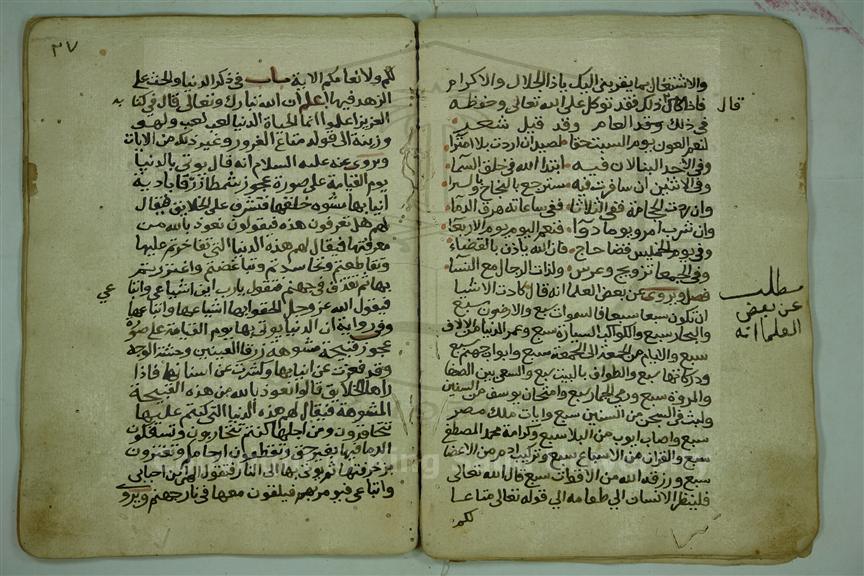 والاشتغال بما يقربني اليك ياذا الجلال والاكرام
فاذا كان ذلك فقد توكل على الله تعالى وحفظه
قال
في ذلك وقد العام وقد قيل شعر
لنعم العون يوم السبت حقا لصيد ان اردت بلا امترا
وفي الأحد البنا لان فيه ابتدا الله في خلق السما
وفي الاثنين ان سافرت فيه سترجع بالنجاح وبالسرا
وان رمت الحجامة ففي الثلاثا ففي ساعاته هرق الدماء
وان شرب امرو يوما دوا فنعم اليوم يوم الاربعا
وفي يوم الخميس قضا حاج فان الله ياذن بالقضاء
وفي الجمعا تزويج وعرس ولذات الرجال مع النسا
فصل ويروى عن بعض العلما انه قال كادت الاشيا
مطلب
عن بعض
العلما انه
ان تكون سبعا سبعا فالسموات سبع والارضون سبع
والبحار سبع والكواكب السيارة سبع وعمر الدنيا الاف
سبع والايام من الجمعة الى الجمعة سبع وابواب جهنم سبع
ودركاتها سبع والطواف بالبيت سبع والسعي بين الصفا
والمروة سبع ورمي الجمار سبع وامتحان يوسف من السنين
ولبث في السجن من السنين سبع ملك مصر
سبع واصاب ايوب من البلا سبع وكرامة محمد المصطفى
سبع والقران من الاسباع سبع وتركيب ادم من الاعضا
سبع ورزقه الله من الاقوات سبع قال الله تعالى
فلينظر الانسان الى طعامه الي قوله تعالى متاعا
لكم
٣٧
لكم ولانعامكم الاية باب في ذكر الدنيا والحث على
الزهد فيها اعلم ان الله تبارك وتعالى قال في كتابه
العزيز اعلموا انما الحياة الدنيا لعب ولهو
وزينة الي قوله متاع الغرور وغير ذلك من الايات
ويروى عنه عليه السلام انه قال يوتي بالدنيا
يوم القيامة على صورة عجوز شمطا زرقا بادية
انيابها مشوه خلقها فتشرف على الخلايق فيقال
لهم هل تعرفون هذه فيقولون نعوذ بالله من
معرفتها فيقال لهم هذه الدنيا التي تفاخرتم عليها
وتقاطعتم وتحاسدتم وتباغضتم واغتررتم
بها ثم تقذف في جهنم فتقول يارب اين اشياعي واتباعي
فيقول الله عز وجل الحقوا بها اشياعها واتباعها
وفي رواية ان الدنيا يوتي بها يوم القيامة على صورة
عجوز قبيحة مشوهه زرقا العينين وحشة الوجه
وقد فغرت عن انيابها وكشرت عن اسنابها فاذا
راها الخلايق قالوا نعوذ بالله من هذه القبيحة
المشوهة فيقال لهم هذه الدنيا التي كنتم عليها
تتفاخرون ومن اجلها كنتم تتحاربون وتسفكون
الدما فيها بغير حق وتقطعون ارحامكم وتغترون
بزخرفتها ثم يوتي بها الي النار فتقول اين احبابي
واتباعي فيومر بهم فيلقون معها في نار جهنم ويروى